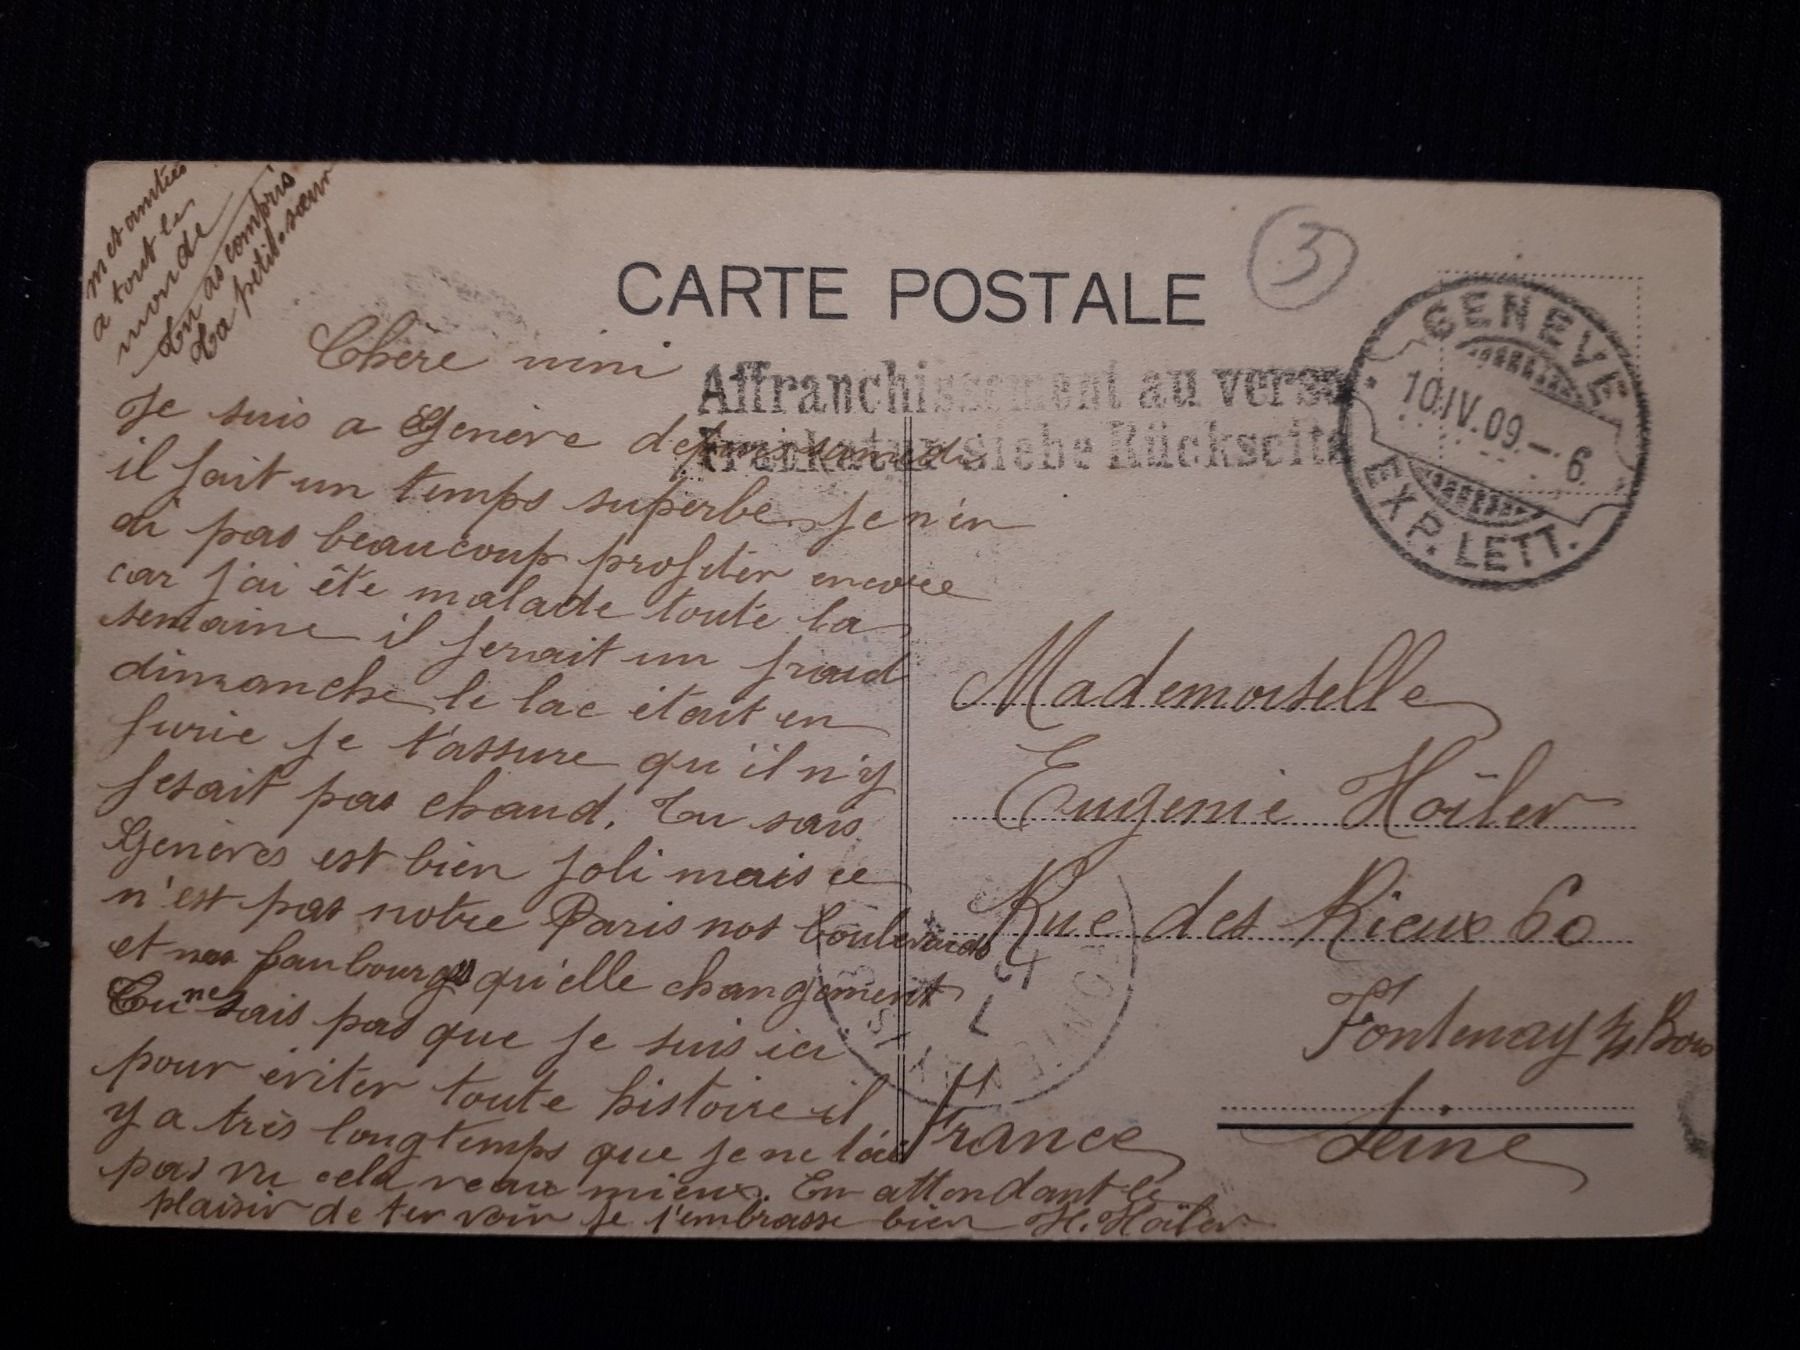 m et amitiés
a tout le
monde
Tu as compris
La petite sœur
CARTE POSTALE
3
Affranchissement au verso
Frankatur siehe Rückseite
GENEVE
10.IV.09.–6
EXP. LETT.
Chère nini
Je suis a Genève depuis samedi
il fait un temps superbe je n'en
ai pas beaucoup profiter encore
car j'ai été malade toute la
semaine il ferait un fraid
dimanche le lac était en
furie je t'assure qu'il n'y
fesait pas chaud. Tu sais
Genèves est bien joli mais ce
n'est pas notre Paris nos boulevards
et nos faubourgs qu'elle changement
Tu ne sais pas que je suis ici
pour éviter toute histoire il
y a très longtemps que je ne t'ai
pas vu cela veau mieux. En attendant le
plaisir de te voir je t'embrasse bien H. Hoïler
Mademoiselle
Eugenie Hoïler
Rue des Rieux 60
Fontenay s/s Bois
Seine
France